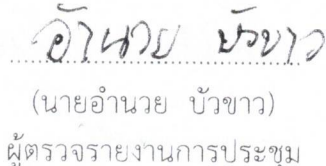 อำนวย บัวขาว
(นายอำนวย บัวขาว)
ผู้ตรวจรายงานการประชุม